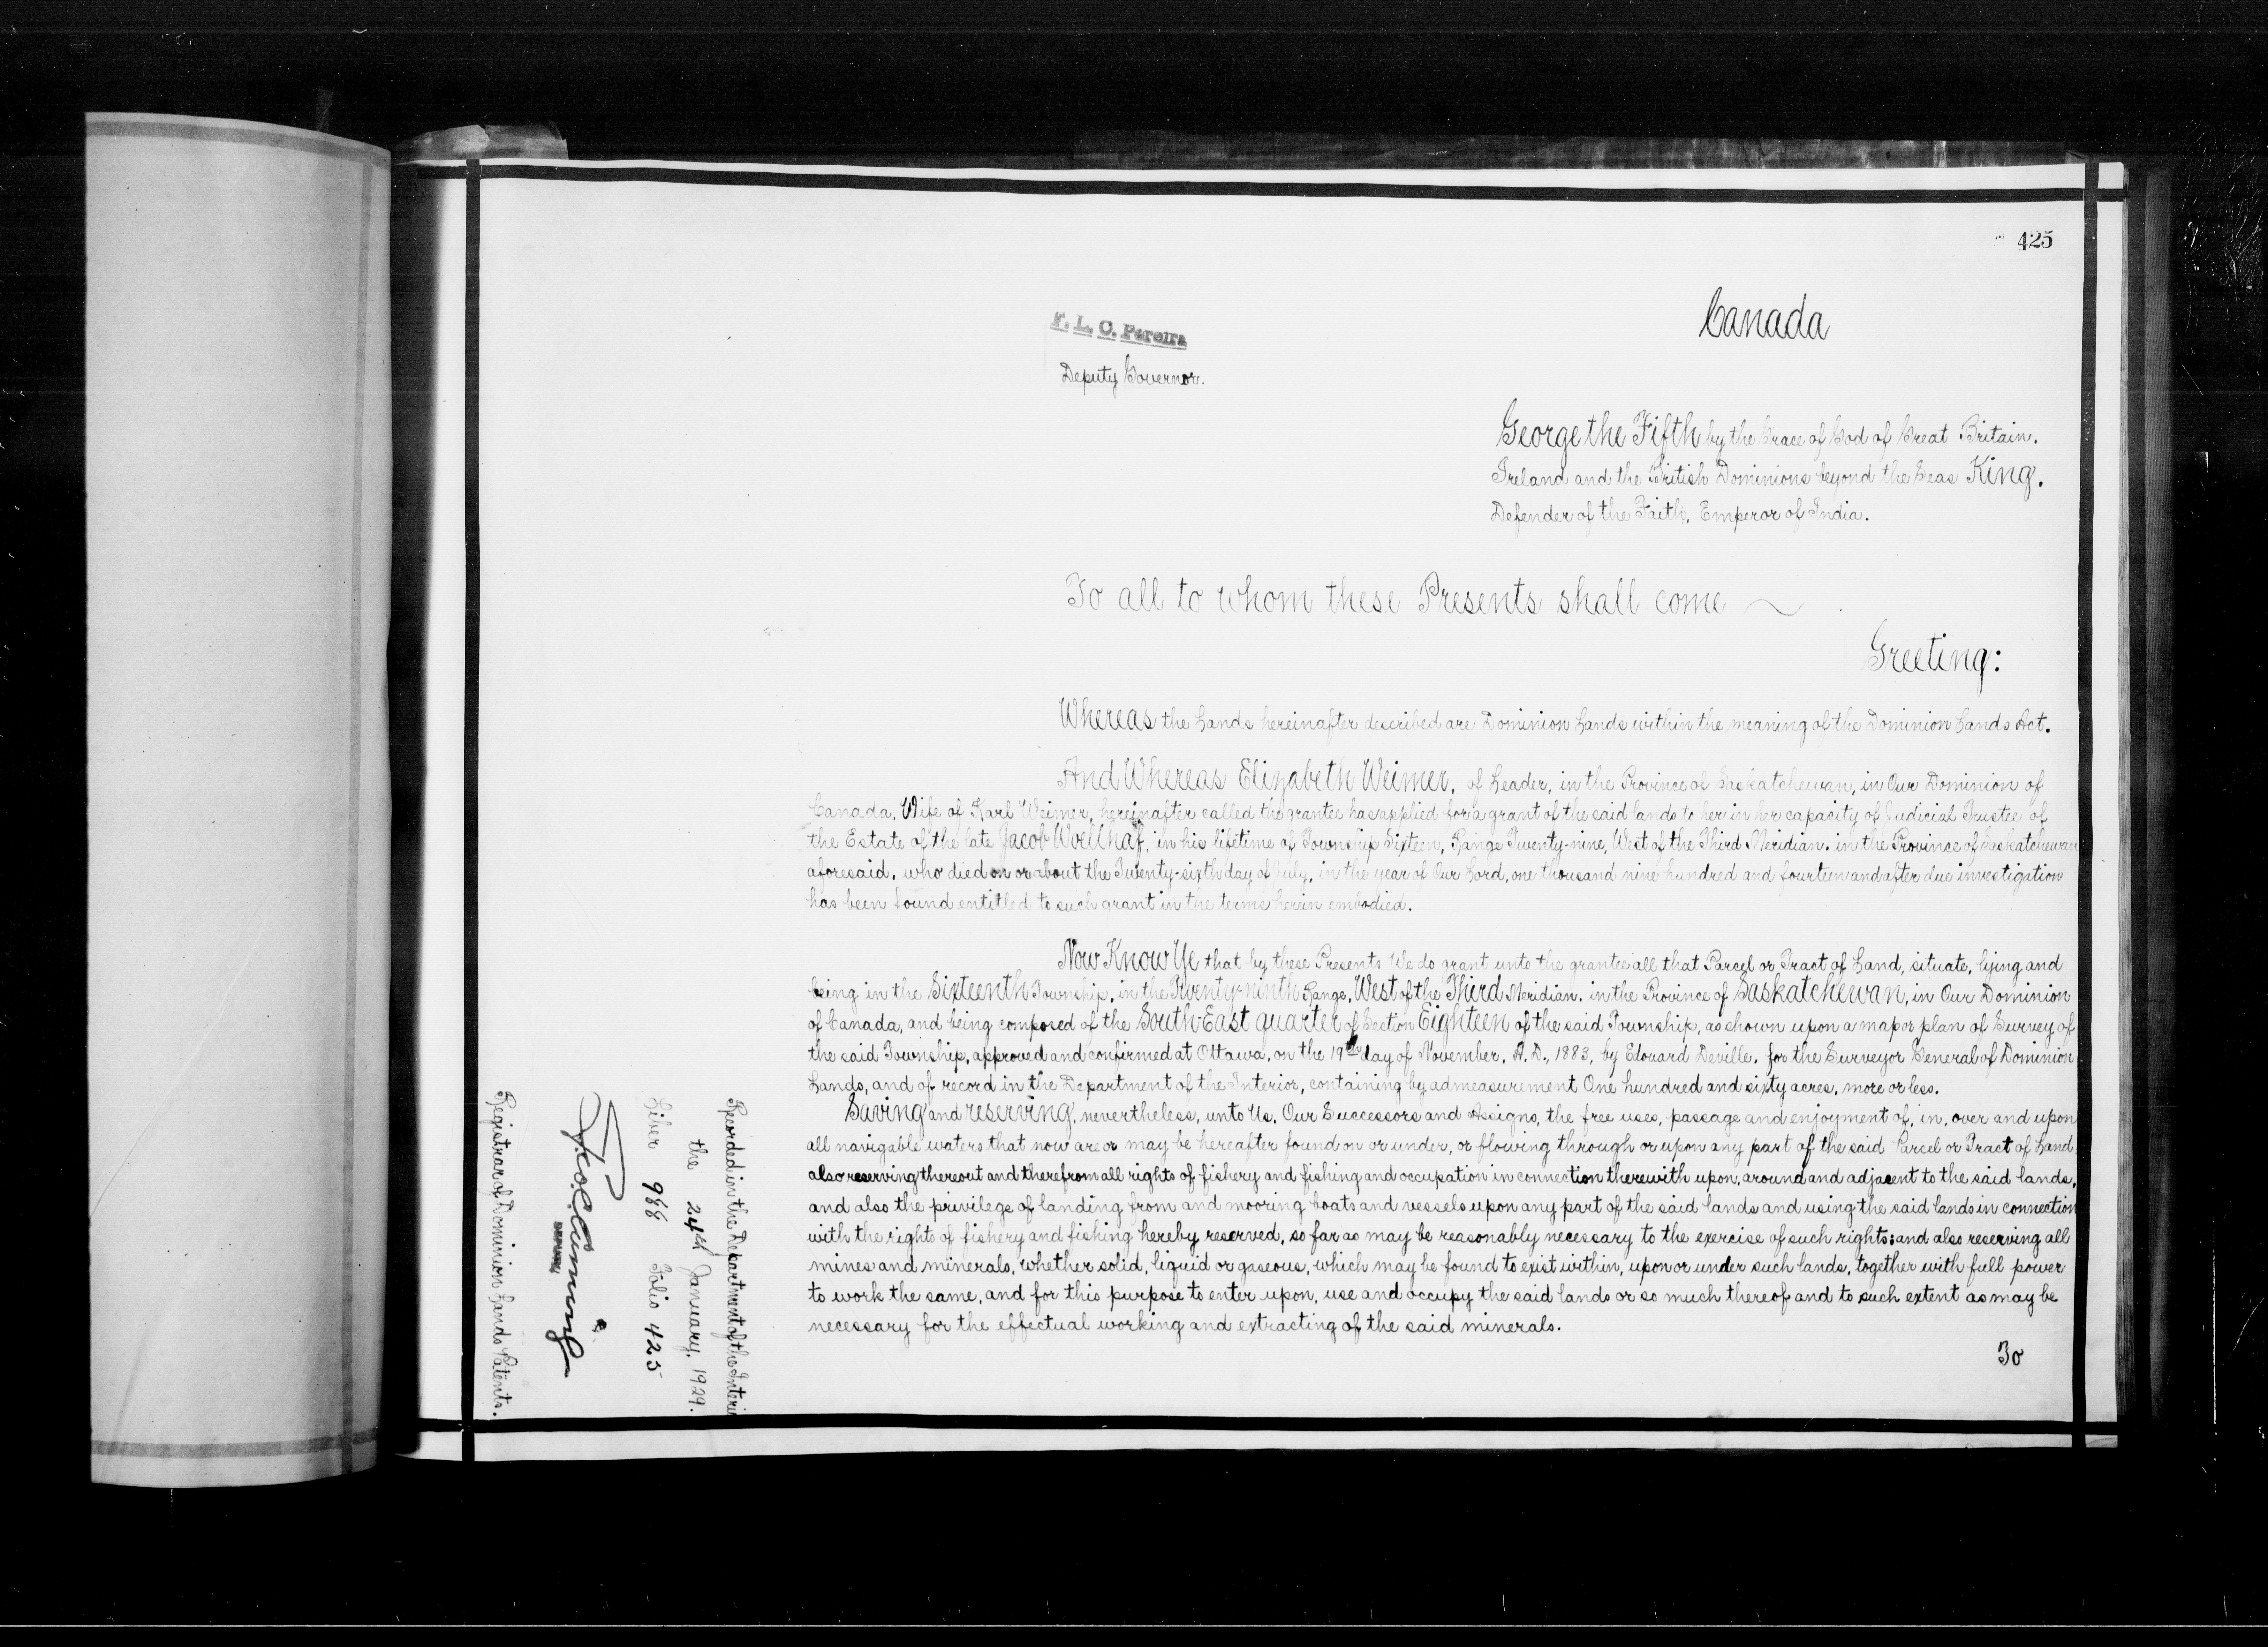 425
Canada
F. L. C. Pereira
Deputy Governor.
George the Fifth by the Grace of God of Great Britain.
Ireland and the British Dominions beyond the Seas King.
Defender of the Faith, Emperor of India.
To all to whom these Presents shall come
Greeting:
Whereas the Lands hereinafter described are Dominion Lands within the meaning of the Dominion Lands Act.
And Whereas Elizabeth Weimer, of Leader, in the Province of Saskatchewan, in Our Dominion of
Canada, Wife of Karl Weimer, hereinafter called the grantee has applied for a grant of the said lands to her in her capacity of Judicial Trustee of
the Estate of the late Jacob Woellhaf, in his lifetime of Township Sixteen, Range Twenty-nine, West of the Third Meridian. in the Province of Saskatchewan
aforesaid, who died on or about the Twenty-sixth day of July, in the year of Our Lord, one thousand nine hundred and fourteen and after due investigation
has been found entitled to such grant in the terms herein embodied.
Now Know Ye that by these Presents We do grant unto the grantee all that Parcel or Tract of Land, situate, lying and
being in the Sixteenth Township, in the Twenty-ninth Range, West of the Third Meridian. in the Province of Saskatchewan, in Our Dominion
of Canada, and being composed of the South-East quarter of Section Eighteen of the said Township, as shown upon a map or plan of Survey of
the said Township, approved and confirmed at Ottawa, on the 19th day of November, A.D., 1883, by Edouard Deville, for the Surveyor General of Dominion
Lands, and of record in the Department of the Interior, containing by admeasurement One hundred and sixty acres, more or less.
Saving and reserving, nevertheless, unto Us, Our Successors and Assigns, the free uses, passage and enjoyment of, in, over and upon
all navigable waters that now are or may be hereafter found on or under, or flowing through or upon any part of the said Parcel or Tract of Land
also reserving thereout and therefrom all rights of fishery and fishing and occupation in connection therewith upon, around and adjacent to the said lands,
and also the privilege of landing from and mooring boats and vessels upon any part of the said lands and using the said lands in connection
with the rights of fishery and fishing hereby reserved, so far as may be reasonably necessary to the exercise of such rights; and also reserving all
mines and minerals, whether solid, liquid or gaseous, which may be found to exist within, upon or under such lands, together with full power
to work the same, and for this purpose to enter upon, use and occupy the said lands or so much thereof and to such extent as may be
necessary for the effectual working and extracting of the said minerals.
To
Recorded in the Department of the Interi
the 24th January, 1929.
Liber 968 Folio 425
Registrar of Dominion Lands Patents.